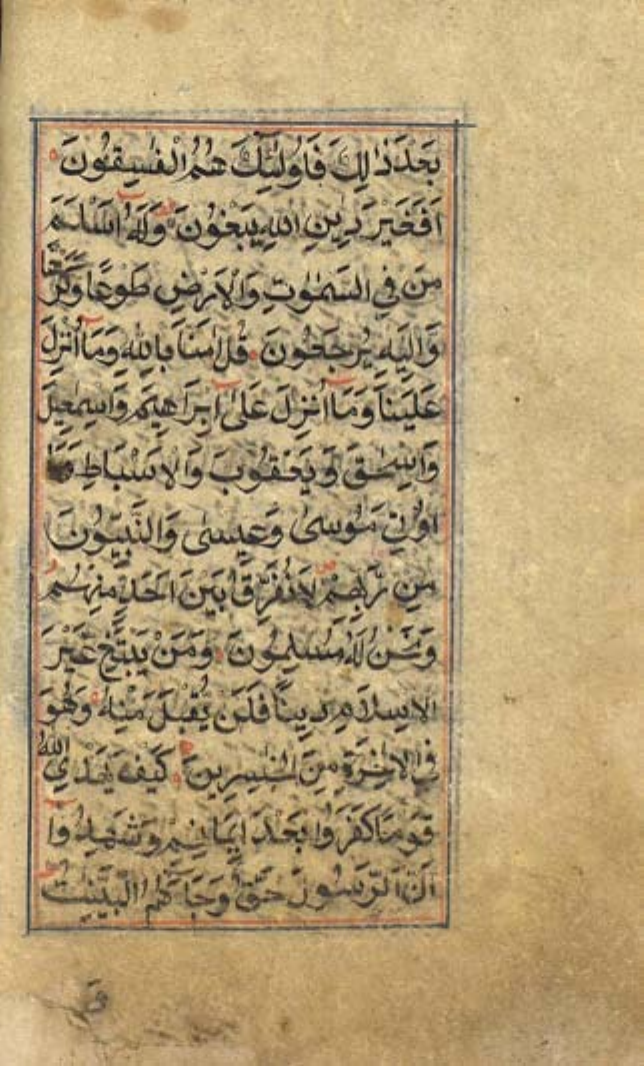 بَعْدَ ذٰلِكَ فَاُولٰٓئِكَ هُمُ الْفٰسِقُوْنَ
اَفَغَيْرَ دِيْنِ اللّٰهِ يَبْغُوْنَ وَلَهٗٓ اَسْلَمَ
مَنْ فِي السَّمٰوٰتِ وَالْاَرْضِ طَوْعًا وَّكَرْهًا
وَّاِلَيْهِ يُرْجَعُوْنَ قُلْ اٰمَنَّا بِاللّٰهِ وَمَآ اُنْزِلَ
عَلَيْنَا وَمَآ اُنْزِلَ عَلٰٓى اِبْرَاهِيْمَ وَاِسْمٰعِيْلَ
وَاِسْحٰقَ وَيَعْقُوْبَ وَالْاَسْبَاطِ وَمَآ
اُوْتِيَ مُوْسٰى وَعِيْسٰى وَالنَّبِيُّوْنَ
مِنْ رَّبِّهِمْ لَا نُفَرِّقُ بَيْنَ اَحَدٍ مِّنْهُمْ
وَنَحْنُ لَهٗ مُسْلِمُوْنَ وَمَنْ يَّبْتَغِ غَيْرَ
الْاِسْلَامِ دِيْنًا فَلَنْ يُّقْبَلَ مِنْهُ وَهُوَ
فِي الْاٰخِرَةِ مِنَ الْخٰسِرِيْنَ كَيْفَ يَهْدِي اللّٰهُ
قَوْمًا كَفَرُوْا بَعْدَ اِيْمَانِهِمْ وَشَهِدُوْٓا
اَنَّ الرَّسُوْلَ حَقٌّ وَّجَآءَهُمُ الْبَيِّنٰتُ